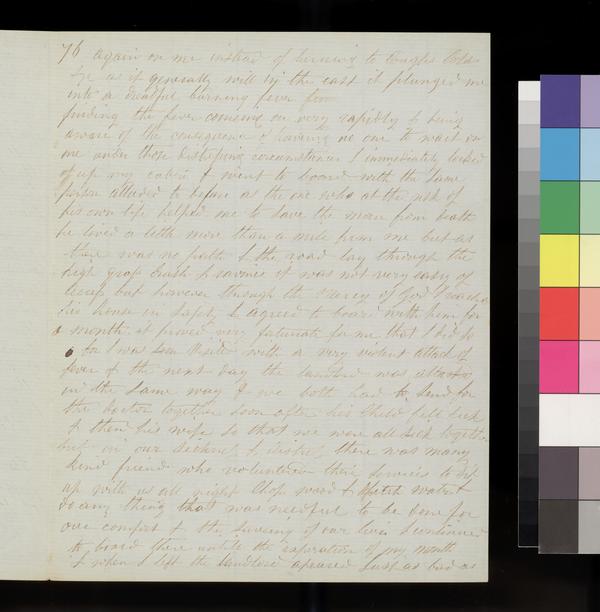 76 again on me instead of turning to Coughs Colds
&c as it generally will in the east it plunged me
into a dreadful burning fever
finding the fever comeing on very rapidly & being
aware of the consequence of having no one to wait on
me under those distressing circumstances I immediately locked
up my cabin & went to board with the same
person alluded to before as the one who at the risk of
his own life helped me to save the man from death
he lived a little more than a mile from me but as
there was no path & the road lay through the
high grass brush & it was not very easy of
but however through the mercy of God I reached
his house in safety & agreed to board with him for
a month it proved very fortunate for me that I did so
for I was soon with a very violent attack of
fever & the next day the landlord was
in the same way & we both had to send for
the doctor together soon after his Child fell sick
& then his wife so that we were all sick together
but in our sickness & distress there was many
kind friends who volunteered their services to sit
up with us all night Chop wood & fetch water &
do any thing that was needful to be done for
our comfort & the saveing of our lives I continued
to board there untile the expiration of my month
& when I left the landlord apeared just as bad as